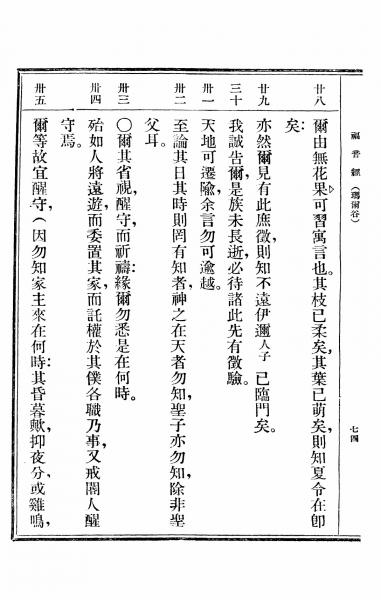 福音經 (瑪爾谷) 七四
廿八 爾由無花果、可習寓言也。其枝已柔矣、其葉已萌矣、則知夏令在卽
矣:
廿九 亦然爾見有此庶徵、則知不遠伊邇人子已臨門矣。
三十 我誠告爾、是族未長逝、必待諸此先有徵驗。
卅一 天地可遷隃、余言勿可逾越。
卅二 至論其日其時、則罔有知者、神之在天者勿知、聖子亦勿知、除非聖
父耳。
卅三 〇爾其省視、醒守而祈禱:緣爾勿悉是在何時。
卅四 殆如人將遠遊、而委置其家、而託權於其僕各職乃事、又戒閽人醒
守焉。
卅五 爾等故宜醒守、(因勿知家主來在何時:其昏暮歟、抑夜分、或雞鳴、